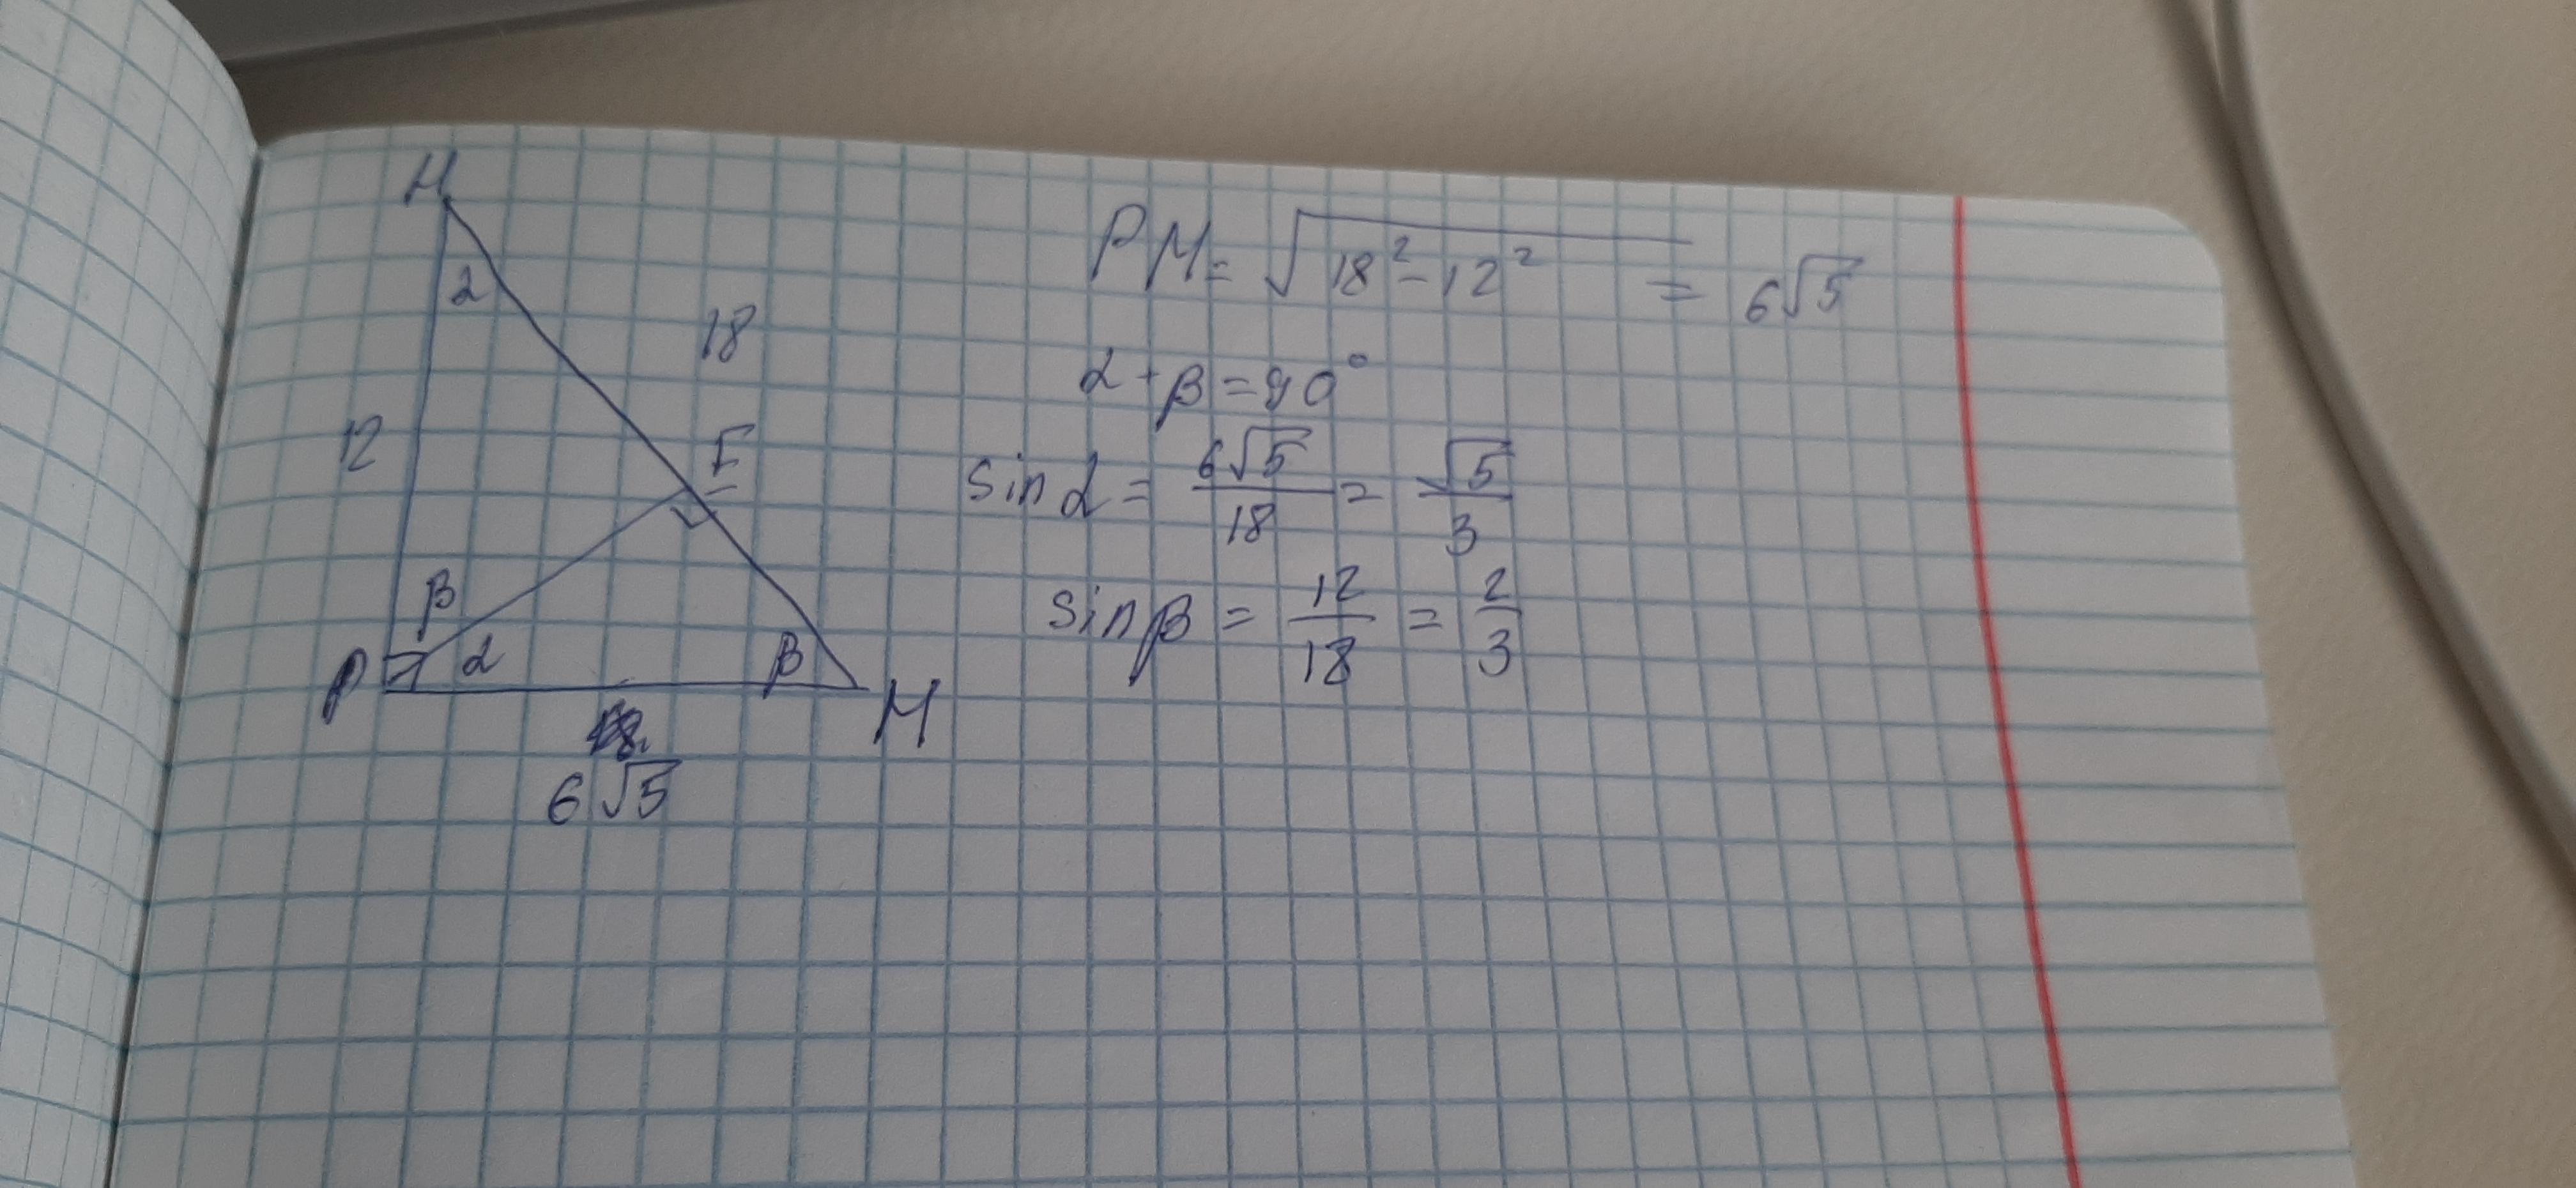 H
α
18
12
E
β
P α β M
6√5
PM = √18² - 12² = 6√5
α + β = 90°
sin α = 6√5/18 = √5/3
sin β = 12/18 = 2/3